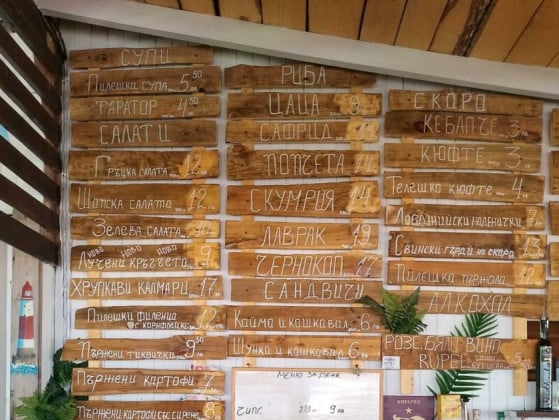 СУПИ
Пилешка супа 5.50
ТАРАТОР 4.50
САЛАТИ
Гръцка салата 12
Шопска салата 12
Зелева салата
НОВО НОВО НОВО
Лучени кръгчета 9
ХРУПКАВИ КАЛМАРИ 17
Пилешки филенца с корнфлейкс 12
Пържени тиквички 9.50
Пържени картофи 7
Пържени картофи със сирене 8
РИБА
ЦАЦА 9
САФРИД
ПОПЧЕТА 14
СКУМРИЯ 14
ЛАВРАК 19
ЧЕРНОКОП 17
САНДВИЧИ
Кайма и кашкавал 6
Шунка и кашкавал 6
МЕНЮ
ЧИПС 220 9
СКАРА
КЕБАПЧЕ 3
КЮФТЕ 3
Телешко кюфте 4
Ловджийски наденички 7
Свински гърди на скара 13
Пилешка пържола 12
АЛКОХОЛ
РОЗЕ, БЯЛО ВИНО
RUPEL 5